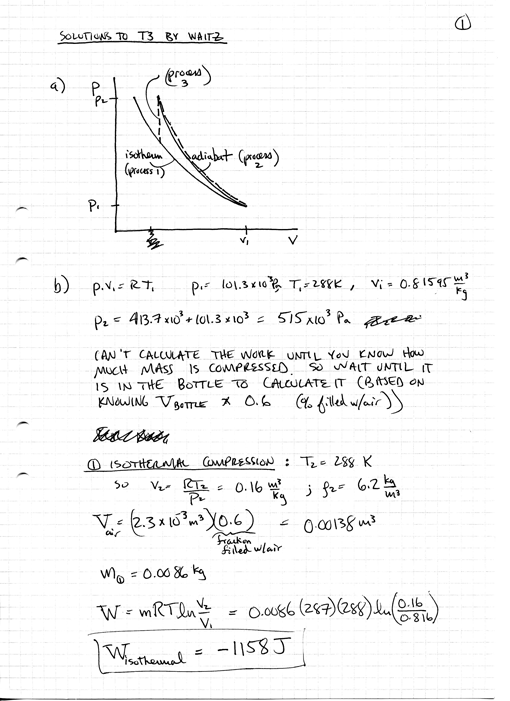 ①
SOLUTIONS TO T3 BY WAITZ
a)
P
(process 3)
P₂
isotherm (process 1)
adiabat (process 2)
P₁
V₁
V
b) p₁V₁ = RT₁ p₁ = 101.3x10³ Pa T₁ = 288K, V₁ = 0.81595 m³/kg
P₂ = 413.7x10³ + 101.3x10³ = 515x10³ Pa
CAN'T CALCULATE THE WORK UNTIL YOU KNOW HOW
MUCH MASS IS COMPRESSED. SO WAIT UNTIL IT
IS IN THE BOTTLE TO CALCULATE IT (BASED ON
KNOWING V BOTTLE x 0.6 (% filled w/air))
① ISOTHERMAL COMPRESSION : T₂ = 288 K
SO V₂ = RT₂/P₂ = 0.16 m³/kg ; ρ₂ = 6.2 kg/m³
V air = (2.3 x 10⁻³ m³)(0.6) = 0.00138 m³
fraction
filled w/air
m① = 0.0086 kg
W = mRT ln V₂/V₁ = 0.0086(287)(288) ln(0.16/0.816)
W isothermal = -1158 J